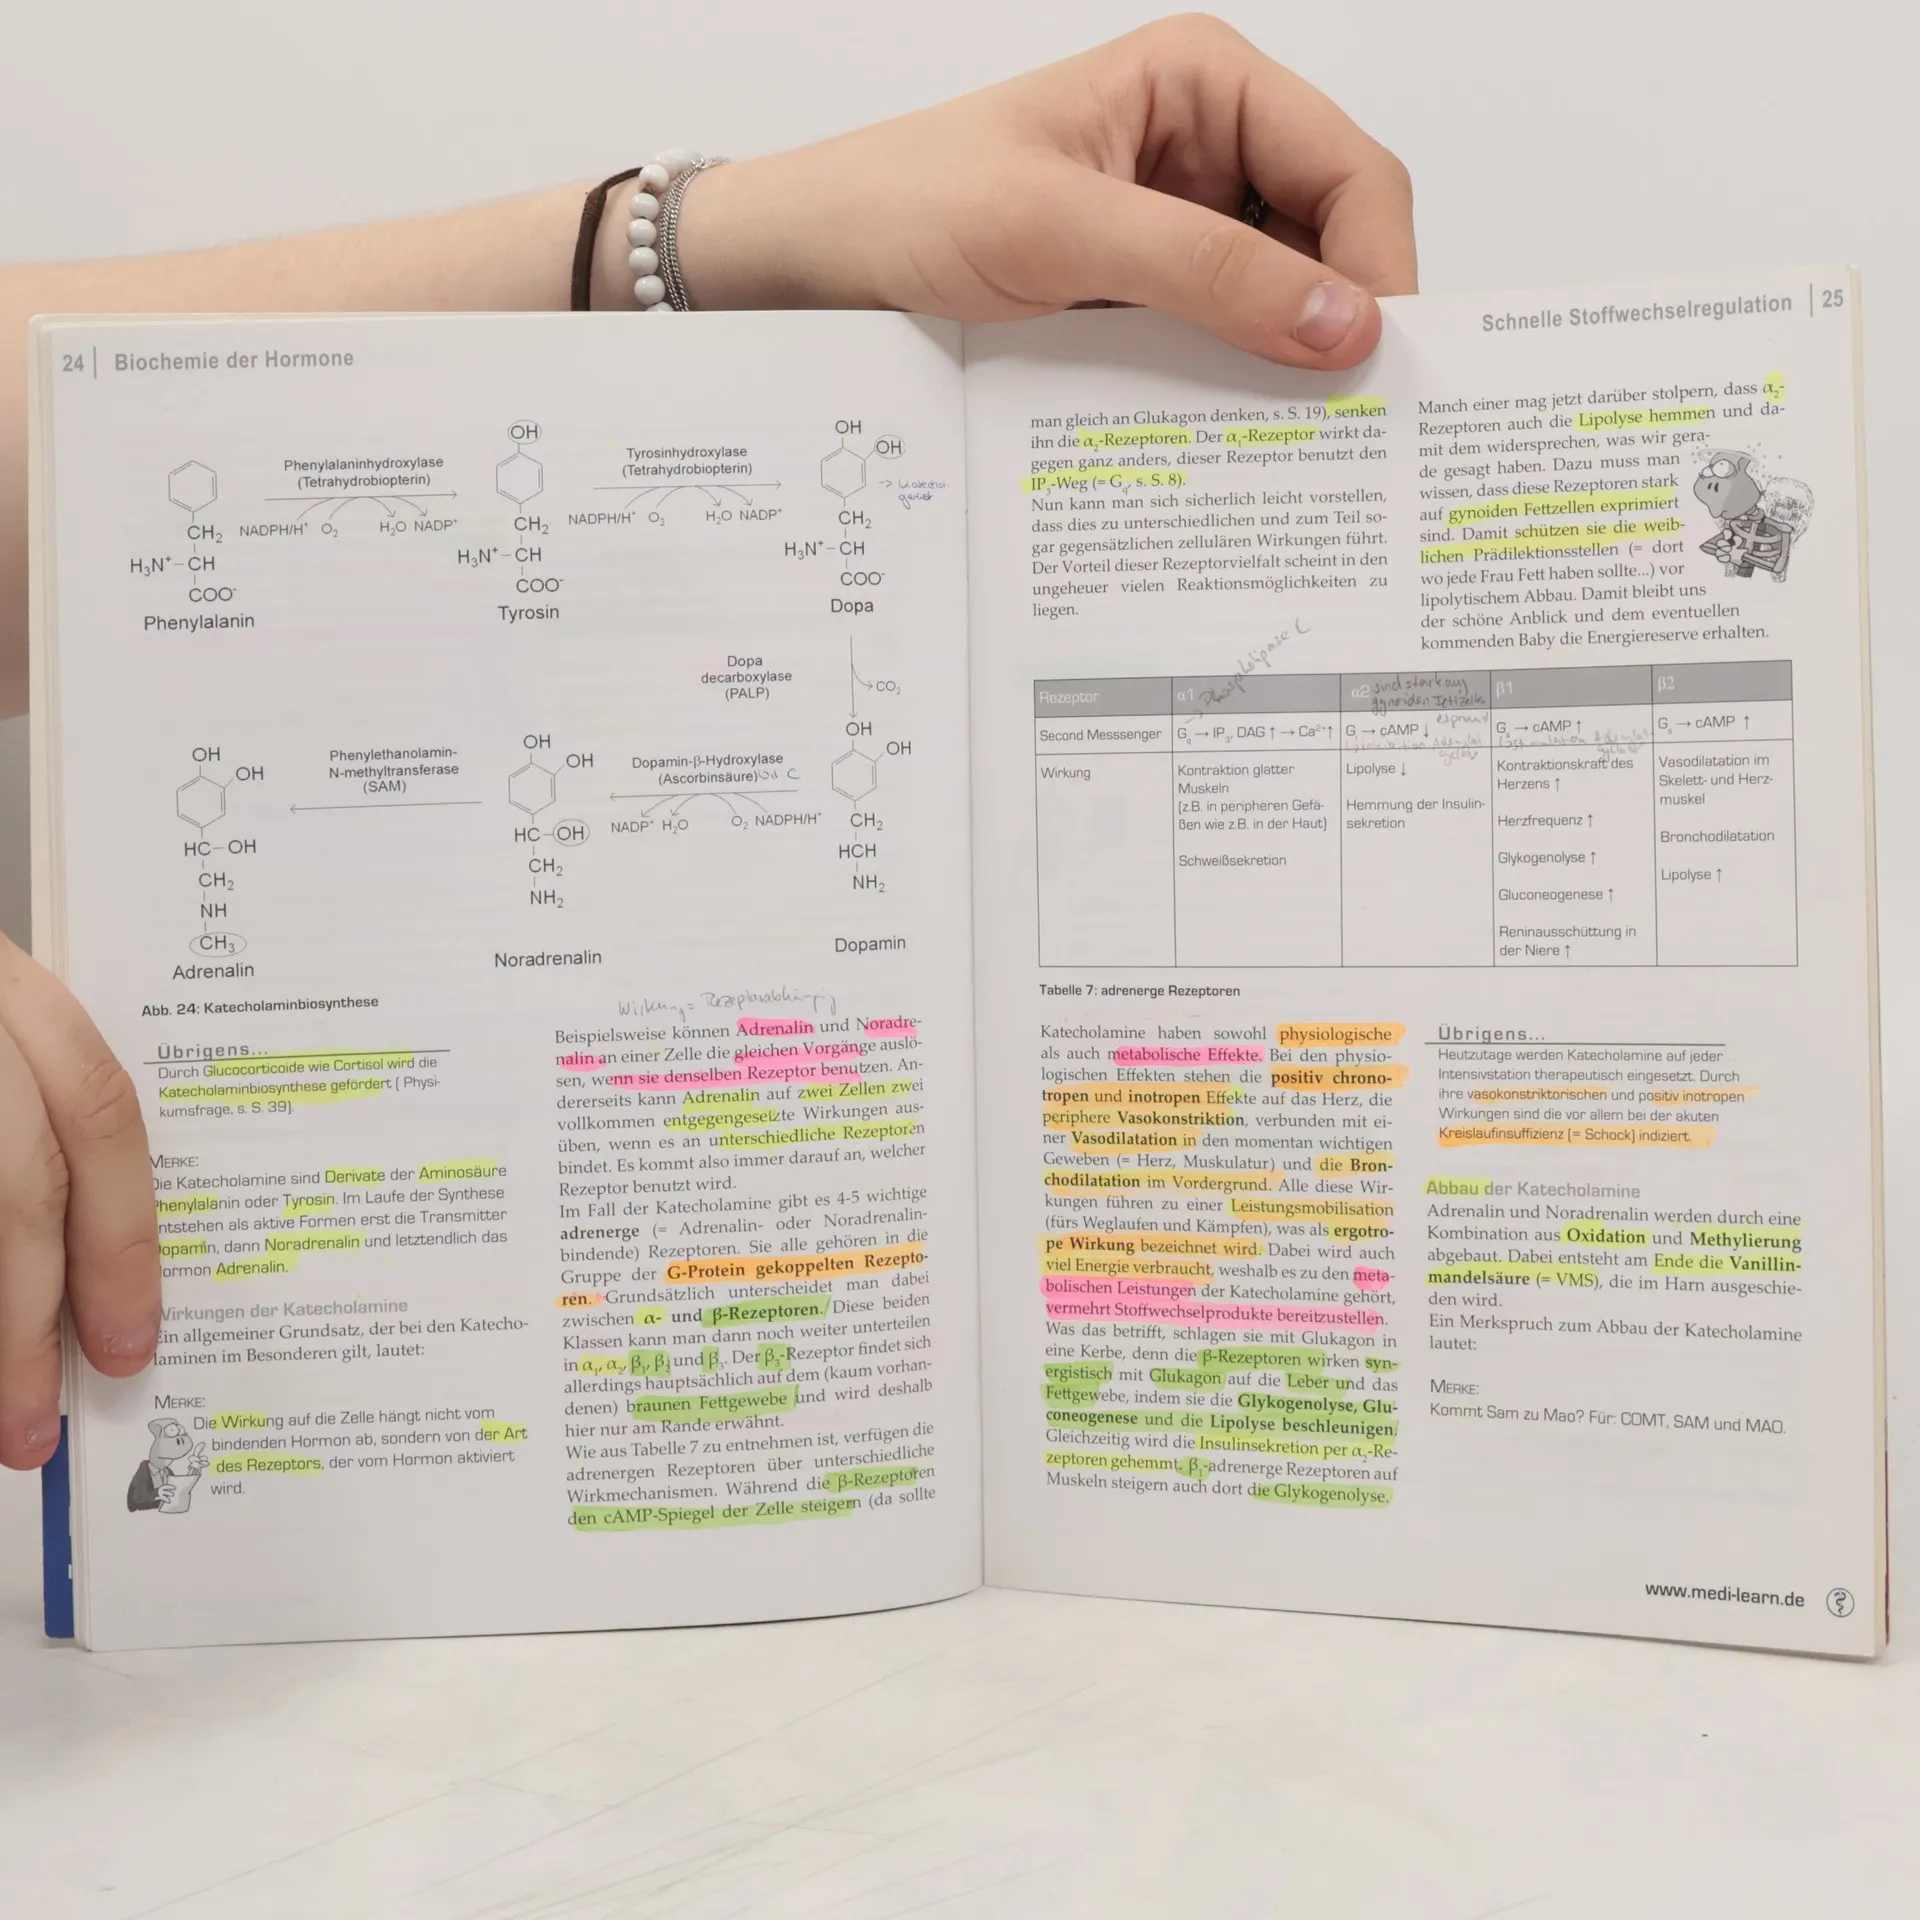 24 | Biochemie der Hormone
OH
OH
OH
Phenylalaninhydroxylase
(Tetrahydrobiopterin)
Tyrosinhydroxylase
(Tetrahydrobiopterin)
->
NADPH/H⁺ O₂ H₂O NADP⁺
NADPH/H⁺ O₂ H₂O NADP⁺
CH₂
H₃N⁺-CH
COO⁻
Phenylalanin
CH₂
H₃N⁺-CH
COO⁻
Tyrosin
CH₂
H₃N⁺-CH
COO⁻
Dopa
Dopa
decarboxylase
(PALP)
CO₂
OH
OH
Phenylethanolamin-
N-methyltransferase
(SAM)
OH
OH
Dopamin-β-Hydroxylase
(Ascorbinsäure) Vit C
OH
OH
NADP⁺ H₂O O₂ NADPH/H⁺
HC-OH
CH₂
NH
CH₃
Adrenalin
HC-OH
CH₂
NH₂
Noradrenalin
CH₂
HCH
NH₂
Dopamin
Abb. 24: Katecholaminbiosynthese
Übrigens...
Durch Glucocorticoide wie Cortisol wird die
Katecholaminbiosynthese gefördert ( Physi-
kumsfrage, s. S. 39).
MERKE:
Die Katecholamine sind Derivate der Aminosäure
Phenylalanin oder Tyrosin. Im Laufe der Synthese
ntstehen als aktive Formen erst die Transmitter
opamin, dann Noradrenalin und letztendlich das
ormon Adrenalin.
Wirkungen der Katecholamine
Ein allgemeiner Grundsatz, der bei den Katecho-
laminen im Besonderen gilt, lautet:
MERKE:
Die Wirkung auf die Zelle hängt nicht vom
bindenden Hormon ab, sondern von der Art
des Rezeptors, der vom Hormon aktiviert
wird.
Wirkung = Rezeptorabhängig
Beispielsweise können Adrenalin und Noradre-
nalin an einer Zelle die gleichen Vorgänge auslö-
sen, wenn sie denselben Rezeptor benutzen. An-
dererseits kann Adrenalin auf zwei Zellen zwei
vollkommen entgegengesetzte Wirkungen aus-
üben, wenn es an unterschiedliche Rezeptoren
bindet. Es kommt also immer darauf an, welcher
Rezeptor benutzt wird.
Im Fall der Katecholamine gibt es 4-5 wichtige
adrenerge (= Adrenalin- oder Noradrenalin-
bindende) Rezeptoren. Sie alle gehören in die
Gruppe der G-Protein gekoppelten Rezepto-
ren. Grundsätzlich unterscheidet man dabei
zwischen α- und β-Rezeptoren. Diese beiden
Klassen kann man dann noch weiter unterteilen
in α₁, α₂, β₁, β₂ und β₃. Der β₃-Rezeptor findet sich
allerdings hauptsächlich auf dem (kaum vorhan-
denen) braunen Fettgewebe und wird deshalb
hier nur am Rande erwähnt.
Wie aus Tabelle 7 zu entnehmen ist, verfügen die
adrenergen Rezeptoren über unterschiedliche
Wirkmechanismen. Während die β-Rezeptoren
den cAMP-Spiegel der Zelle steigern (da sollte
Schnelle Stoffwechselregulation | 25
man gleich an Glukagon denken, s. S. 19), senken
ihn die α₂-Rezeptoren. Der α₁-Rezeptor wirkt da-
gegen ganz anders, dieser Rezeptor benutzt den
IP₃-Weg (= Gq, s. S. 8).
Nun kann man sich sicherlich leicht vorstellen,
dass dies zu unterschiedlichen und zum Teil so-
gar gegensätzlichen zellulären Wirkungen führt.
Der Vorteil dieser Rezeptorvielfalt scheint in den
ungeheuer vielen Reaktionsmöglichkeiten zu
liegen.
Manch einer mag jetzt darüber stolpern, dass α₂-
Rezeptoren auch die Lipolyse hemmen und da-
mit dem widersprechen, was wir gera-
de gesagt haben. Dazu muss man
wissen, dass diese Rezeptoren stark
auf gynoiden Fettzellen exprimiert
sind. Damit schützen sie die weib-
lichen Prädilektionsstellen (= dort
wo jede Frau Fett haben sollte...) vor
lipolytischem Abbau. Damit bleibt uns
der schöne Anblick und dem eventuellen
kommenden Baby die Energiereserve erhalten.
-> Phospholipase C
Rezeptor α1 α2 sind stark auf β1 β2
gynoiden Fettzellen
Second Messsenger Gq → IP₃, DAG ↑ → Ca²⁺↑ G → cAMP ↓ G → cAMP ↑ G → cAMP ↑
Wirkung
Kontraktion glatter
Muskeln
(z.B. in peripheren Gefä-
ßen wie z.B. in der Haut)
Schweißsekretion
Lipolyse ↓
Hemmung der Insulin-
sekretion
Kontraktionskraft des
Herzens ↑
Herzfrequenz ↑
Glykogenolyse ↑
Gluconeogenese ↑
Reninausschüttung in
der Niere ↑
Vasodilatation im
Skelett- und Herz-
muskel
Bronchodilatation
Lipolyse ↑
Tabelle 7: adrenerge Rezeptoren
Katecholamine haben sowohl physiologische
als auch metabolische Effekte. Bei den physio-
logischen Effekten stehen die positiv chrono-
tropen und inotropen Effekte auf das Herz, die
periphere Vasokonstriktion, verbunden mit ei-
ner Vasodilatation in den momentan wichtigen
Geweben (= Herz, Muskulatur) und die Bron-
chodilatation im Vordergrund. Alle diese Wir-
kungen führen zu einer Leistungsmobilisation
(fürs Weglaufen und Kämpfen), was als ergotro-
pe Wirkung bezeichnet wird. Dabei wird auch
viel Energie verbraucht, weshalb es zu den meta-
bolischen Leistungen der Katecholamine gehört,
vermehrt Stoffwechselprodukte bereitzustellen.
Was das betrifft, schlagen sie mit Glukagon in
eine Kerbe, denn die β-Rezeptoren wirken syn-
ergistisch mit Glukagon auf die Leber und das
Fettgewebe, indem sie die Glykogenolyse, Glu-
coneogenese und die Lipolyse beschleunigen.
Gleichzeitig wird die Insulinsekretion per α₂-Re-
zeptoren gehemmt. β₁-adrenerge Rezeptoren auf
Muskeln steigern auch dort die Glykogenolyse.
Übrigens...
Heutzutage werden Katecholamine auf jeder
Intensivstation therapeutisch eingesetzt. Durch
ihre vasokonstriktorischen und positiv inotropen
Wirkungen sind die vor allem bei der akuten
Kreislaufinsuffizienz (= Schock) indiziert.
Abbau der Katecholamine
Adrenalin und Noradrenalin werden durch eine
Kombination aus Oxidation und Methylierung
abgebaut. Dabei entsteht am Ende die Vanillin-
mandelsäure (= VMS), die im Harn ausgeschie-
den wird.
Ein Merkspruch zum Abbau der Katecholamine
lautet:
MERKE:
Kommt Sam zu Mao? Für: COMT, SAM und MAO.
www.medi-learn.de